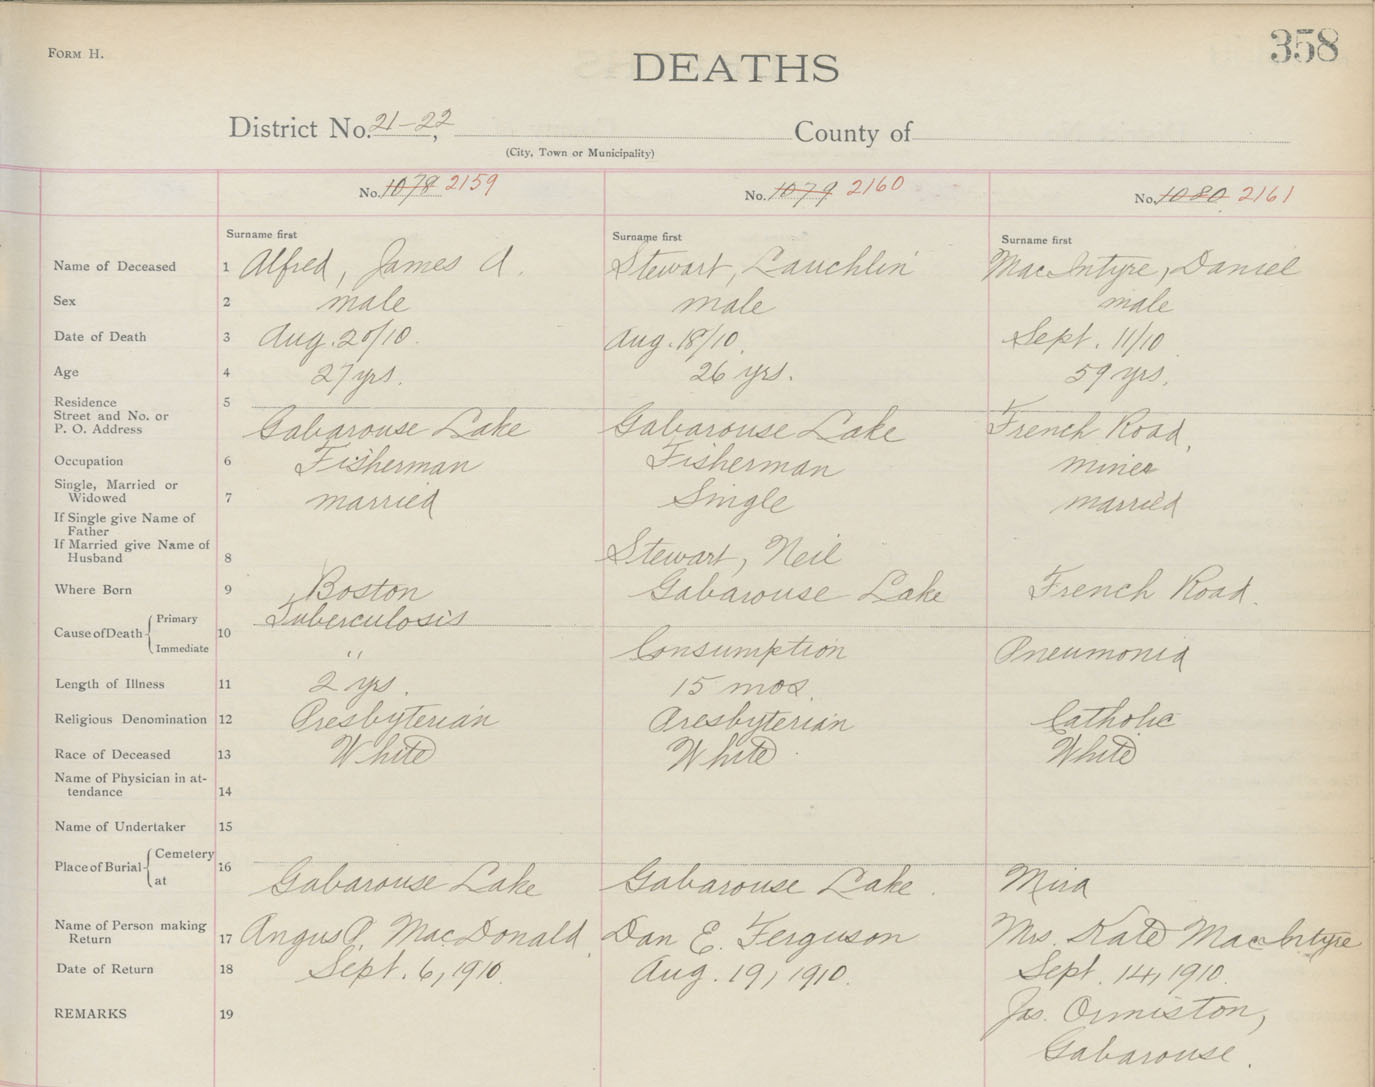 Form H.
358
DEATHS
District No. 21-22, County of
(City, Town or Municipality)
No. 1078 2159 No. 1079 2160 No. 1080 2161
Surname first Surname first Surname first
Name of Deceased 1 Alfred, James A. Stewart, Lauchlin MacIntyre, Daniel
Sex 2 male male male
Date of Death 3 Aug. 20/10. Aug. 18/10. Sept. 11/10
Age 4 27 yrs. 26 yrs. 59 yrs.
Residence 5
Street and No. or
P. O. Address Gabarouse Lake Gabarouse Lake French Road.
Occupation 6 Fisherman Fisherman miner
Single, Married or
Widowed 7 married Single married
If Single give Name of
Father
If Married give Name of
Husband 8 Stewart, Neil
Where Born 9 Boston Gabarouse Lake French Road.
Cause of Death 10 Primary Tuberculosis
Immediate " Consumption Pneumonia
Length of Illness 11 2 yrs. 15 mos.
Religious Denomination 12 Presbyterian Presbyterian Catholic
Race of Deceased 13 White White White
Name of Physician in at-
tendance 14
Name of Undertaker 15
Place of Burial 16 Cemetery
at Gabarouse Lake Gabarouse Lake. Mira
Name of Person making
Return 17 Angus P. MacDonald. Dan E. Ferguson Mrs. Kate MacIntyre
Date of Return 18 Sept. 6, 1910. Aug. 19, 1910. Sept. 14, 1910.
REMARKS 19 Jas. Ormiston,
Gabarouse.